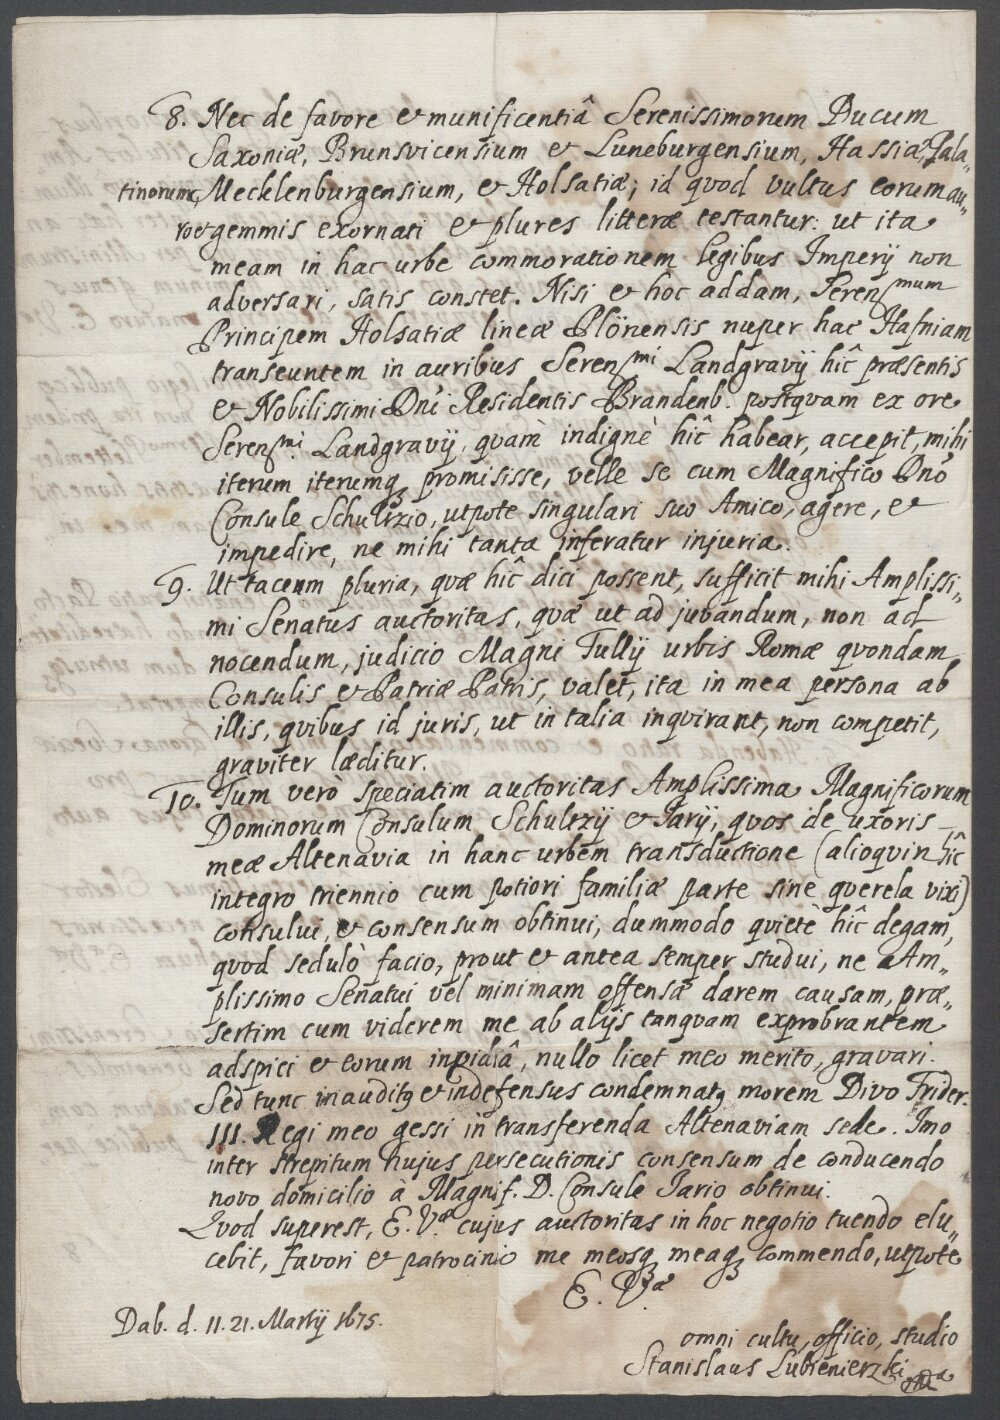 8. Nec de favore et munificentiâ Serenissimorum Ducum
Saxoniæ, Brunsvicensium et Luneburgensium, Hassiæ, Pala„
tinorum, Mecklenburgensium, et Holsatiæ; id quod vultus eorum au„
ro et gemmis exornati et plures litteræ testantur: ut ita
meam in hac urbe commorationem legibus Imperij non
adversari, satis constet. Nisi et hoc addam, Serenmum
Principem Holsatiæ lineæ Plönensis nuper hac Hafniam
transeuntem in auribus Serenmi Landgravij hîc præsentis
et Nobilissimi Dni Residentis Brandenb. postquam ex ore
Serenmi Landgravij, quàm indignè hîc habear, accepit, mihi
iterum iterumq promisisse, velle se cum Magnifico Dno
Consule Schultzio, utpote singulari suo Amico, agere, et
impedire, ne mihi tanta inferatur injuria.
9. Ut taceam pluria, quæ hîc dici possent, sufficit mihi Amplissi„
mi Senatus auctoritas, quæ ut ad juvandum, non ad
nocendum, judicio Magni Tullij urbis Romæ quondam
Consulis et Patriæ Patris, valet, ita in mea persona ab
illis, quibus id juris, ut in talia inquirant, non competit,
graviter læditur.
10. Tum verò speciatim auctoritas Amplissima Magnificorum
Dominorum Consulum Schultzij et Jarij, quos de uxoris
meæ Altenavia in hanc urbem transductione (alioquin hîc
integro triennio cum potiori familiæ parte sine querela vixi)
consului, et consensum obtinui, dummodo quietè hîc degam,
quod sedulò facio, prout et antea semper studui, ne Am„
plissimo Senatui vel minimam offensæ darem causam, præ„
sertim cum viderem me ab alijs tanquam exprobrantem
adspici et eorum invidiâ, nullo licet meo merito, gravari.
Sed tunc inauditq et indefensus condemnatq morem Divo Frider.
III. Regi meo gessi in transferenda Altenaviam sede. Imo
inter strepitum hujus persecutionis consensum de conducendo
novo domicilio à Magnif. D. Consule Jario obtinui.
Quod superest, E. Væ cujus auctoritas in hoc negotio tuendo elu„
cebit, favori et patrocinio me meosq meaq commendo, utpote
E. Væ
Dab. d. 11. 21. Martij 1675.
omni cultu, officio, studio
Stanislaus Lubienierzki